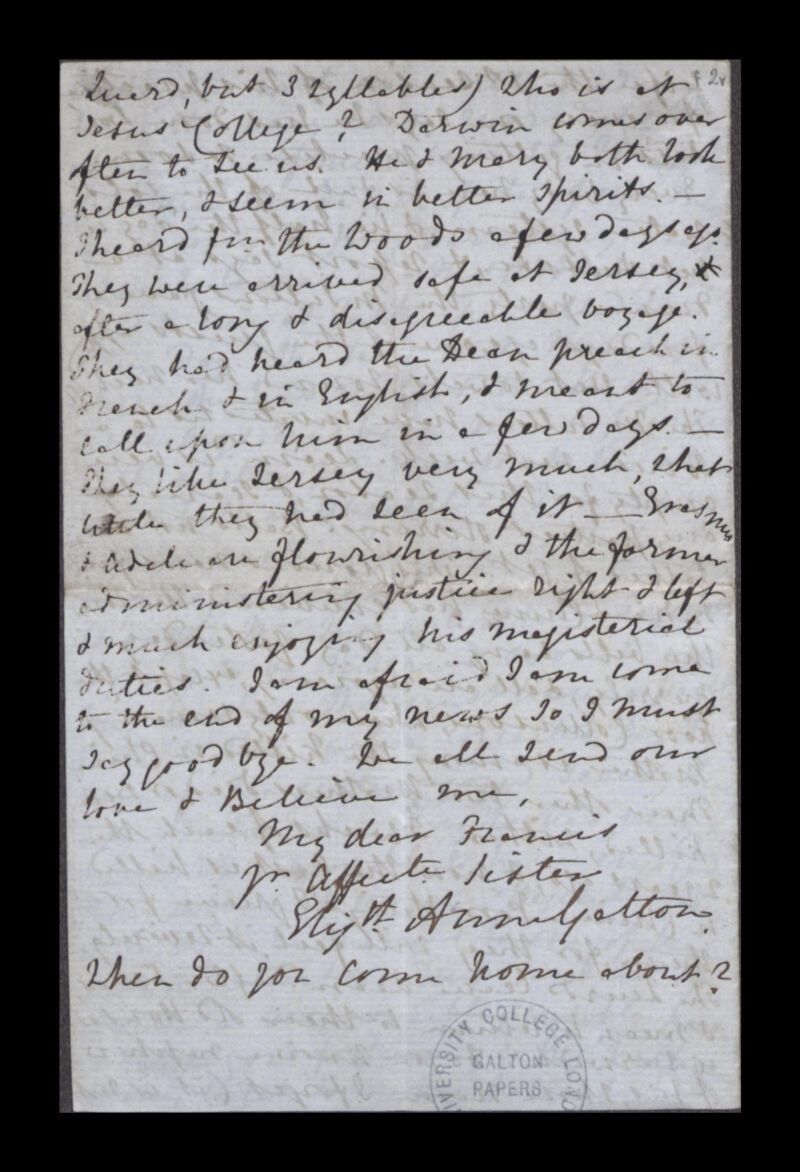 f 2v
but 3 syllables) who is at
Jesus College? Darwin comes over
often to see us. He & Mary both look
better, & seem in better spirits. —
I heard fm the Woods a few days ago.
They were arrived safe at Jersey,
after a long & disagreeable voyage.
They had heard the Dean preach in
French & in English, & meant to
call upon him in a few days. —
They like Jersey very much, what
little they had seen of it — Erasmus
& Adele are flourishing & the former
administering justice right & left
& much enjoying his magisterial
duties. I am afraid I am come
to the end of my news so I must
say good bye. We all send our
love & Believe me,
My dear Francis
yr Affecte Sister
Elizth Anne Galton.
When do you come home about?
UNIVERSITY COLLEGE LOND
GALTON
PAPERS